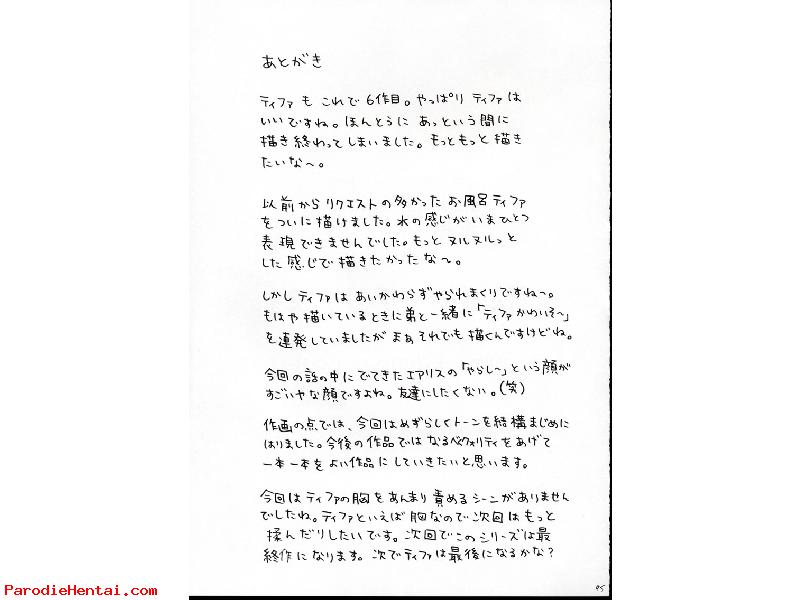 あとがき
ティファも これで 6作目。やっぱり ティファは
いいですね。ほんとうに あっという間に
描き終わってしまいました。もっともっと 描き
たいな～。
以前から リクエストの多かった お風呂ティファ
をついに描けました。水の感じがいまひとつ
表現できませんでした。もっと ヌルヌルっと
した感じで描きたかったな～。
しかし ティファは あいかわらずやられまくりですね～。
もはや描いているときに弟と一緒に「ティファかわいそ～」
を連発していましたが まぁ それでも描くんですけどね。
今回の話の中にでてきたエアリスの「やらし～」という顔が
すごいヤな顔ですよね。友達にしたくない。(笑)
作画の点では、今回はめずらしくトーンを結構まじめに
はりました。今後の作品では なるべクォリティをあげて
一本一本をよい作品にしていきたいと思います。
今回はティファの胸をあんまり責めるシーンがありません
でしたね。ティファといえば胸なので次回はもっと
揉んだりしたいです。次回でこのシリーズは最
終作になります。次でティファは最後になるかな?
ParodieHentai.com